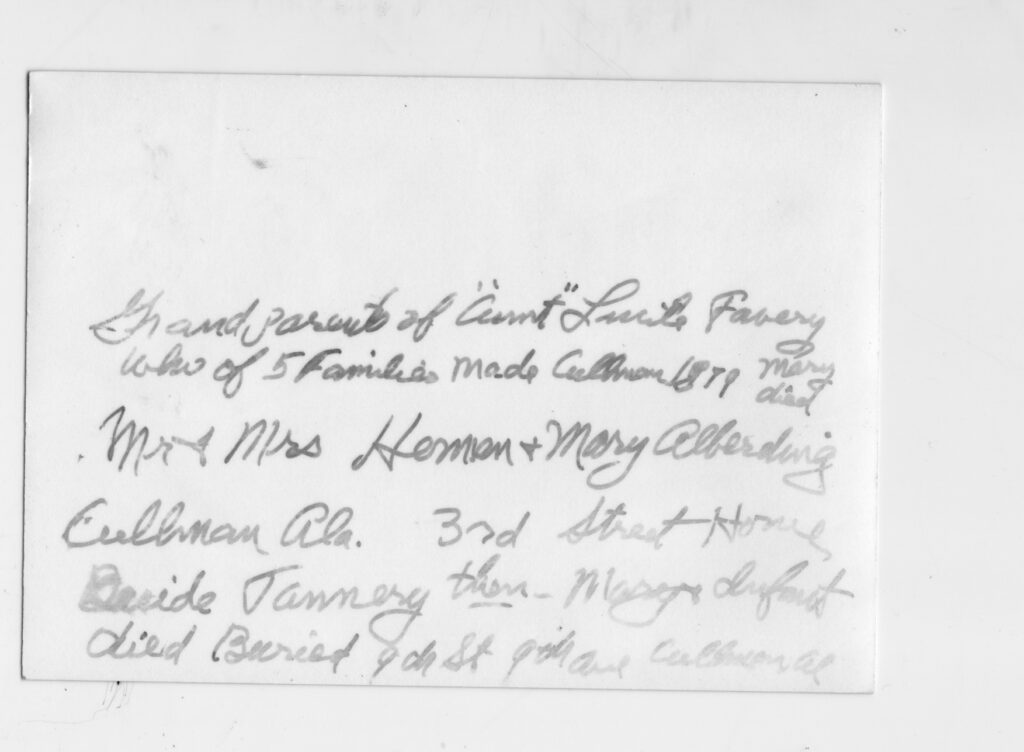 Grandparents of "Aunt" Lucile Favery
who of 5 Families Made Cullman 1879 Mary died
Mr & Mrs Homen + Mary Alberding
Cullman Ala. 3rd Street Home
Beside Tannery then - Mary & Infant
died Buried 9th St 9th Ave Cullman Al